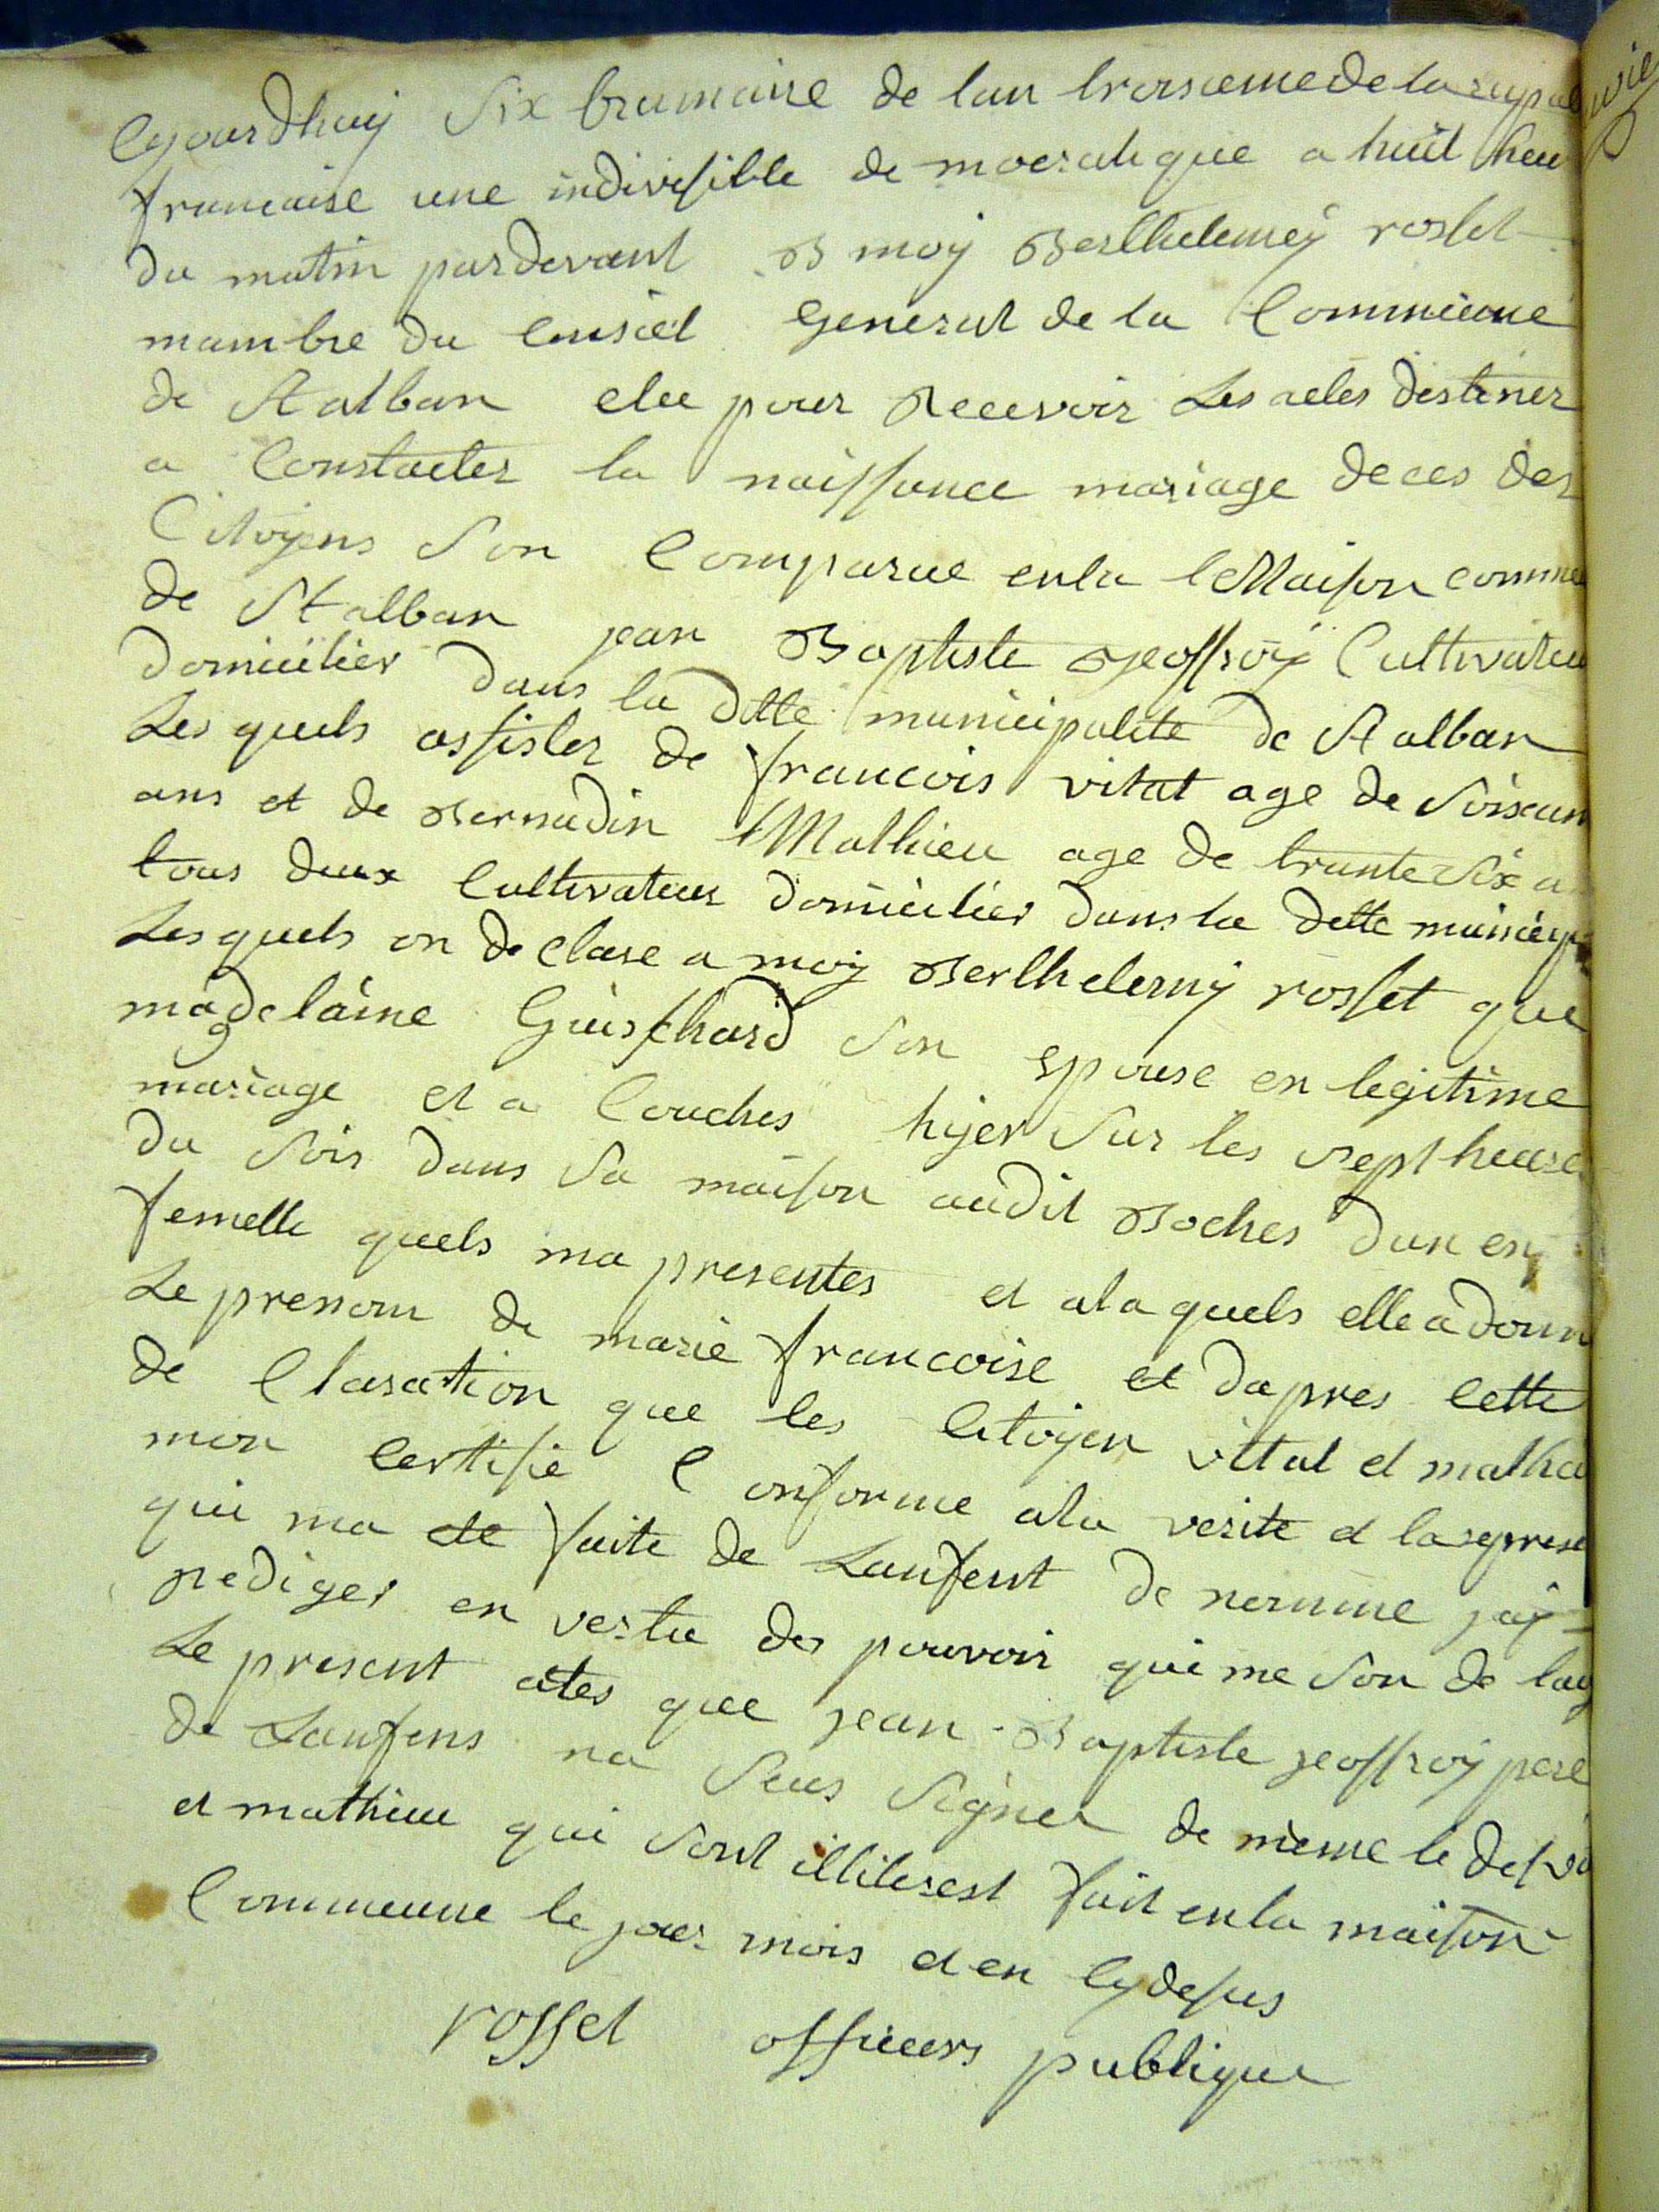 Cejourdhuy Six brumaire de lan troisieme de la repub
francaise une indivisible de mocratique a huit heu
du matin pardevant B moy Berthelemey rosset
mambre du Consiel General de la Commueune
de St alban elue pour Recevoir Les actes destiner
a Constacter la naissance mariage deces des
Citoyens Son Comparue enla Maison comme
de St alban jean Baptiste geoffroy Cultivateu
domicilier dans la ditte municipalite de St alban
Les quels assister de francois vital age de Soisean
ans et de Bernadin Mathieu age de trante Six a
tous deux Cultivateur domicilier dans la ditte municip
Lesquels on de clare a moy Berthelemy rosset que
magdelaine Guischard Son epouse en legitime
mariage et a Couches hyer Sur les sept heure
du Soir dans Sa maison audit Boches dun en
femelle quels ma presentes et ala quels elle a donn
Le prenom de marie francoise et dapres Cette
de Claration que les Citoyen vital et mathie
mon Certifie Conforme ala verite et la represe
qui ma ete faite de Lanfent de nomme jay
rediger en vertu des pouvoir qui me Son de lag
Le present actes que jean Baptiste jeoffroy pere
de Lanfens na Seus Signer de meme le
et mathieu qui Sont illiterest fait enla maison
Commeune le jour mois et en Cydesus
rosset officiers publique